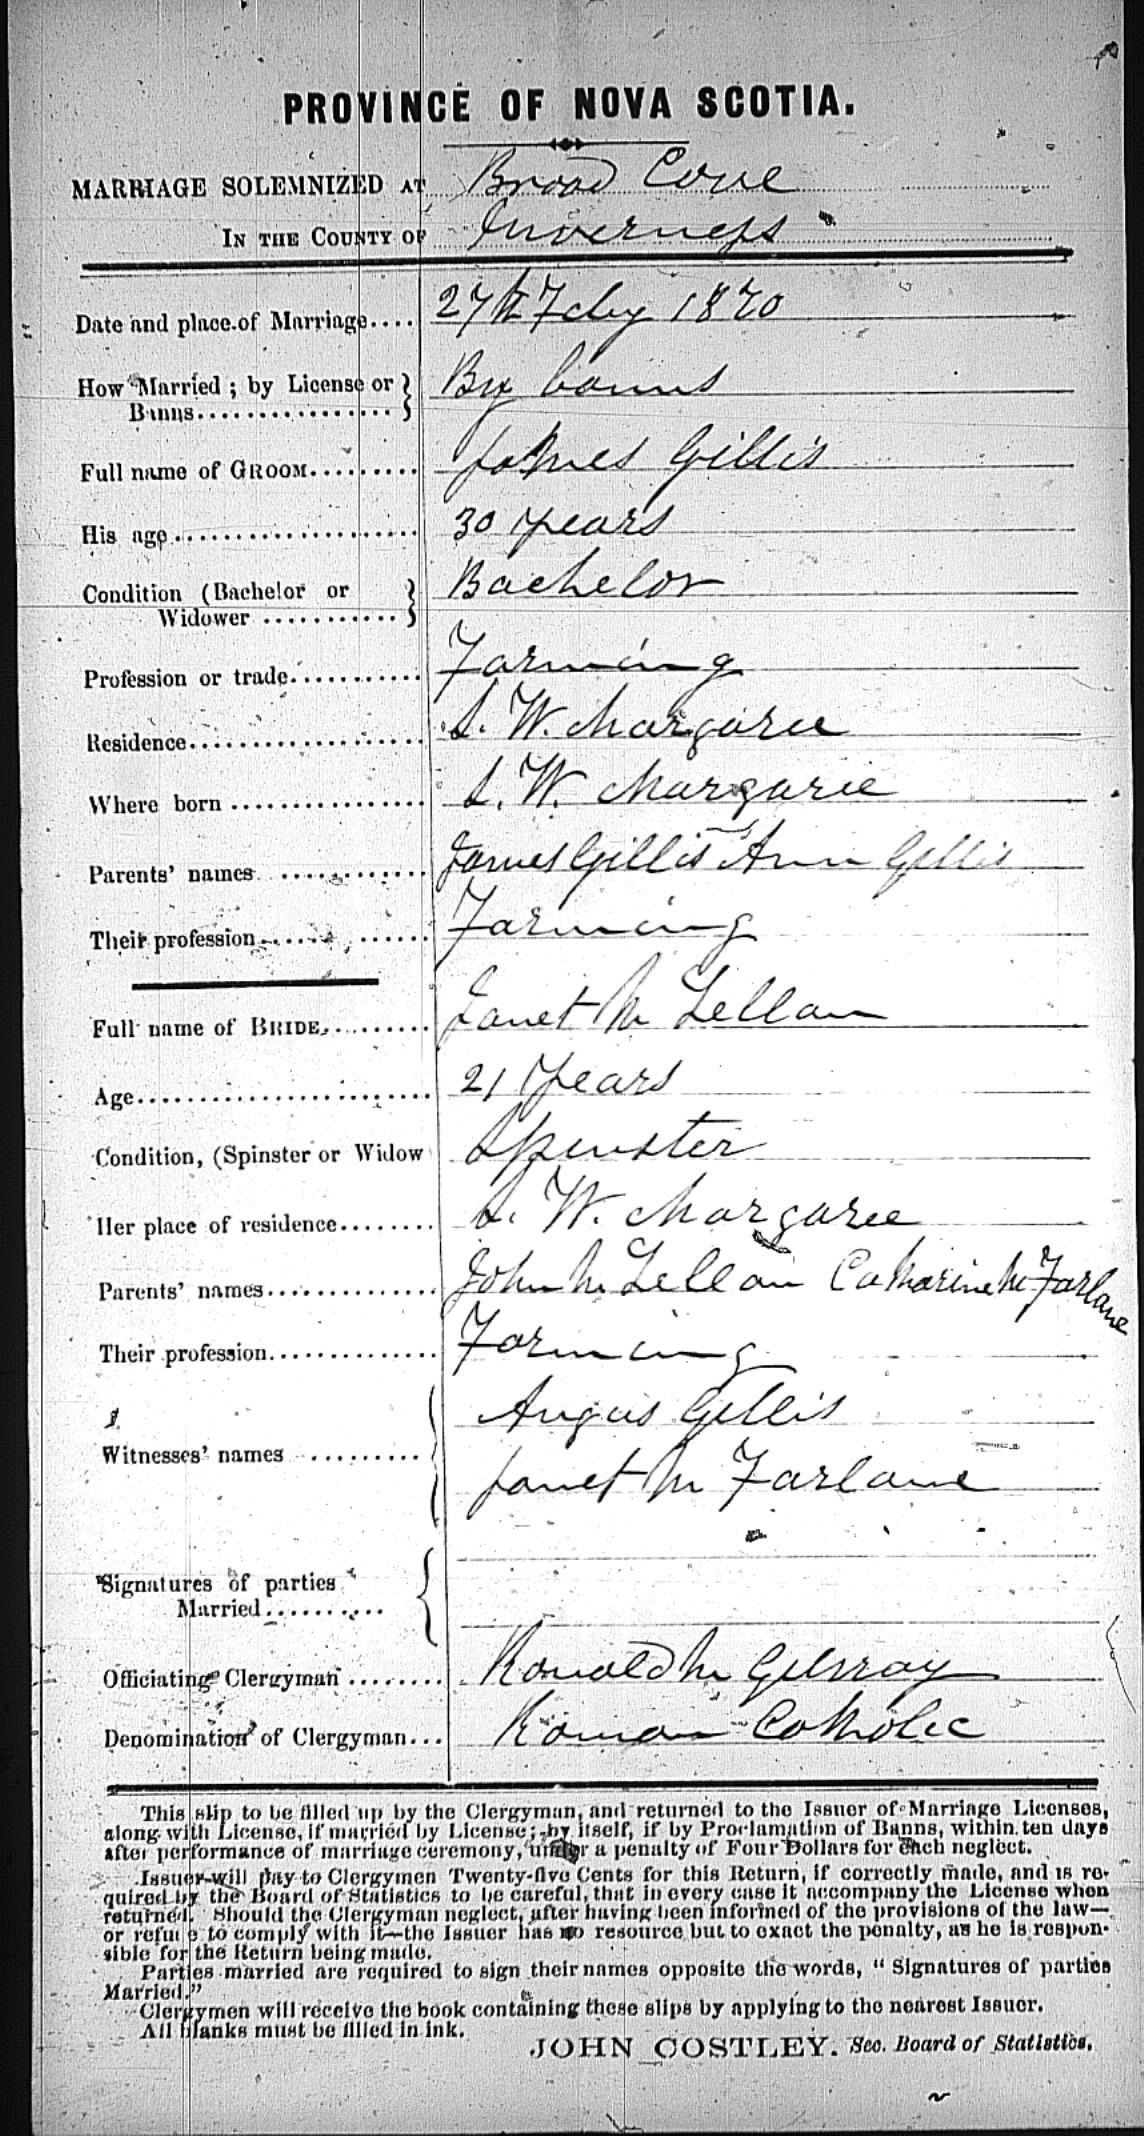 PROVINCE OF NOVA SCOTIA.
MARRIAGE SOLEMNIZED AT Broad Cove
IN THE COUNTY OF Inverness
Date and place of Marriage.... 27th Feby 1870
How Married; by License or Banns................ By banns
Full name of GROOM......... James Gillis
His age...................... 30 years
Condition (Bachelor or
Widower ........... Bachelor
Profession or trade........... Farming
Residence..................... S. W. Margaree
Where born ................ S. W. Margaree
Parents' names ............ James Gillis Ann Gillis
Their profession............ Farming
Full name of BRIDE.......... Janet Mc Lellan
Age........................ 21 years
Condition, (Spinster or Widow Spinster
Her place of residence........ S. W. Margaree
Parents' names.............. John Mc Lellan Catharine Mc Farlane
Their profession.............. Farming
Angus Gillis
Witnesses' names ......... Janet Mc Farlane
Signatures of parties
Married..........
Officiating Clergyman ........ Ronald Mc Gilvray
Denomination of Clergyman... Roman Catholic
This slip to be filled up by the Clergyman, and returned to the Issuer of Marriage Licenses,
along with License, if married by License; by itself, if by Proclamation of Banns, within ten days
after performance of marriage ceremony, under a penalty of Four Dollars for each neglect.
Issuer will pay to Clergymen Twenty-five Cents for this Return, if correctly made, and is re-
quired by the Board of Statistics to be careful, that in every case it accompany the License when
returned. Should the Clergyman neglect, after having been informed of the provisions of the law—
or refuse to comply with it—the Issuer has no resource but to exact the penalty, as he is respon-
sible for the Return being made.
Parties married are required to sign their names opposite the words, "Signatures of parties
Married."
Clergymen will receive the book containing these slips by applying to the nearest Issuer.
All blanks must be filled in ink.
JOHN COSTLEY. Sec. Board of Statistics.